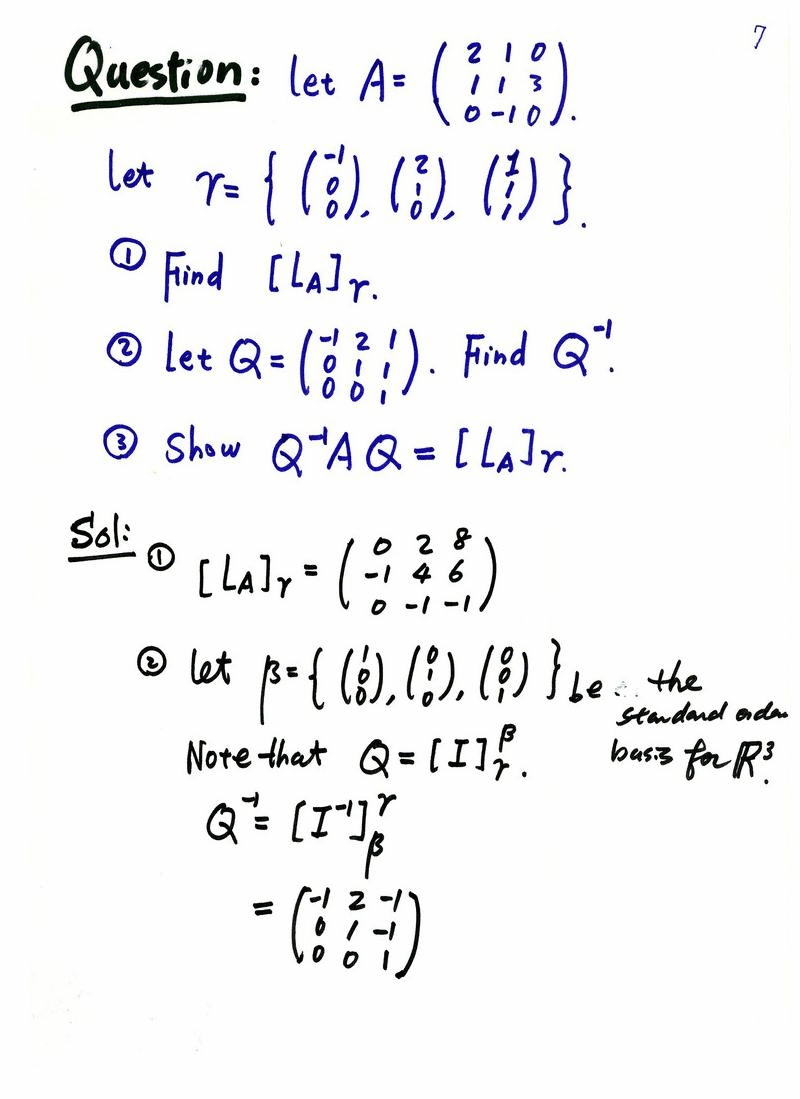 7
Question: let A = ( 2 1 0
1 1 3
0 -1 0 ).
let γ = { ( -1 0 0 ), ( 2 1 0 ), ( 1 1 1 ) }.
① Find [L_A]_γ.
② let Q = ( -1 2 1
0 1 1
0 0 1 ). Find Q⁻¹.
③ Show Q⁻¹AQ = [L_A]_γ.
Sol: ① [L_A]_γ = ( 0 2 8
-1 4 6
0 -1 -1 )
② let β = { ( 1 0 0 ), ( 0 1 0 ), ( 0 0 1 ) } be the
standard order
basis for ℝ³.
Note that Q = [I]_γ^β.
Q⁻¹ = [I⁻¹]_β^γ
= ( -1 2 -1
0 1 -1
0 0 1 )